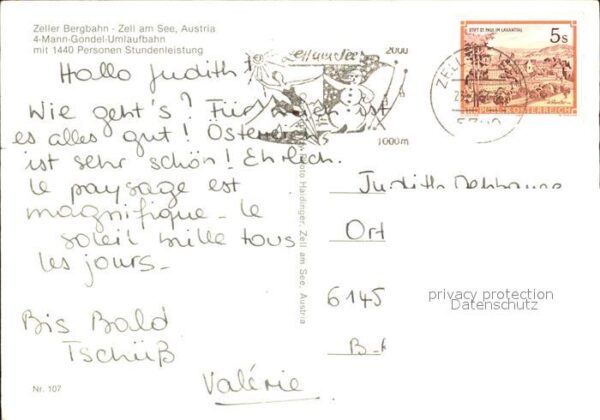 Zeller Bergbahn - Zell am See, Austria
4-Mann-Gondel-Umlaufbahn
mit 1440 Personen Stundenleistung
Hallo Judith!
Wie geht's? Für ist
es alles gut!
ist sehr schön! Ehrlich.
le paysage est
magnifique. le
soleil brille tous
les jours.
Bis Bald
Tschüß
Valérie
Nr. 107
Foto Haidinger, Zell am See, Austria
Zell am See
2000
1000m
STIFT ST. PAUL IM LAVANTTAL
5s
REPUBLIK ÖSTERREICH
ZELL
Judith
Ort
6145
B-
privacy protection
Datenschutz